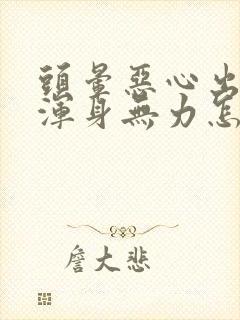 頭暈惡心出
渾身無力怎
詹大悲